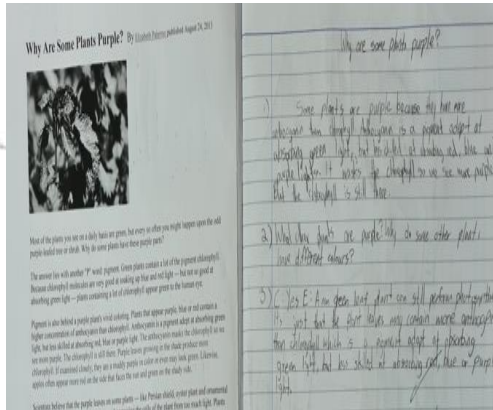 Why Are Some Plants Purple? By Elizabeth published August 24, 2013
Most of the plants you see on a daily basis are green, but every so often you might happen upon the odd
purple-leafed tree or shrub. Why do some plants have these purple parts?
The answer lies with another "P" word: pigment. Green plants contain a lot of the pigment chlorophyll.
Because chlorophyll molecules are very good at soaking up blue and red light — but not so good at
absorbing green light — plants containing a lot of chlorophyll appear green to the human eye.
Pigment is also behind a purple plant's vivid coloring. Plants that appear purple, blue or red contain a
higher concentration of anthocyanin than chlorophyll. Anthocyanin is a pigment adept at absorbing green
light, but less skilled at absorbing red, blue or purple light. The anthocyanin masks the chlorophyll so we
see more purple. The chlorophyll is still there. Purple leaves growing in the shade produce more
chlorophyll. If examined closely, they are a muddy purple in color or even may look green. Likewise,
apples often appear more red on the side that faces the sun and green on the shady side.
Scientists believe that the purple leaves on some plants — like Persian shield, oyster plant and ornamental
from too much light. Plants
Why are some plants purple?
1) Some plants are purple because they have more
than chlorophyll. is a pigment adept at
absorbing green light, but at absorbing red, blue
purple light. It masks the chlorophyll so we see more purple
but the chlorophyll is still there.
2) What other plants are purple? Why do some other plants
have different colours?
3) C Yes E: A non green leaf plant can still perform
It's just that the leaves may contain more
than chlorophyll which is a adept at absorbing
green light, but less skilled at absorbing red, blue or purple
light.